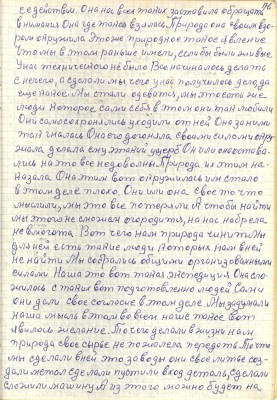 96
се действия. Она нас всех таких заставила обращать
внимание. Она где такова взялась. Природа она своим взо-
ром окружила. Это же природное такое явление
Что мы в этом раньше имели, если бы были живые
У нас технического не было. Все начиналось делать
с нечего, а сделали мы чего у нас получилось дело да
еще такое. Мы стали одеваться, мы то есть же
люди которое сами себя в этом они так любили
Они самосохранялись уходили от ней Она за ними
так гналась Она его догоняла своими силами окру
жала делала ему такой ущерб Они или оне оставались
на это все недовольны. Природа их этим на-
казала Она этим вот окружилась им стало
в этом деле плохо. Они или она свое то что
мыслили, мы это все потеряли А чтобы найти
мы этого не сможем огородить, на нас набрела
невмогота. Вот чего нам природа чинит. Мы
для ней есть такие люди которых нам в ней
не найти Мы собрались общими организованными
силами Наша это вот такая экспедиция. Она сло-
жилась с таких вот подготовленно людей Сами
они дали свое согласие в этом деле Мы задумали
наша мысль в том во всем наше такое вот
явилось желание. То чего делали в жизни нам
природа свое сырье не пожалела передать. То что
мы сделали в ней это заводы они свое литье соз-
дали метал сделали пустили в ход деталь, сделали
сложили машину А из этого можно будет на